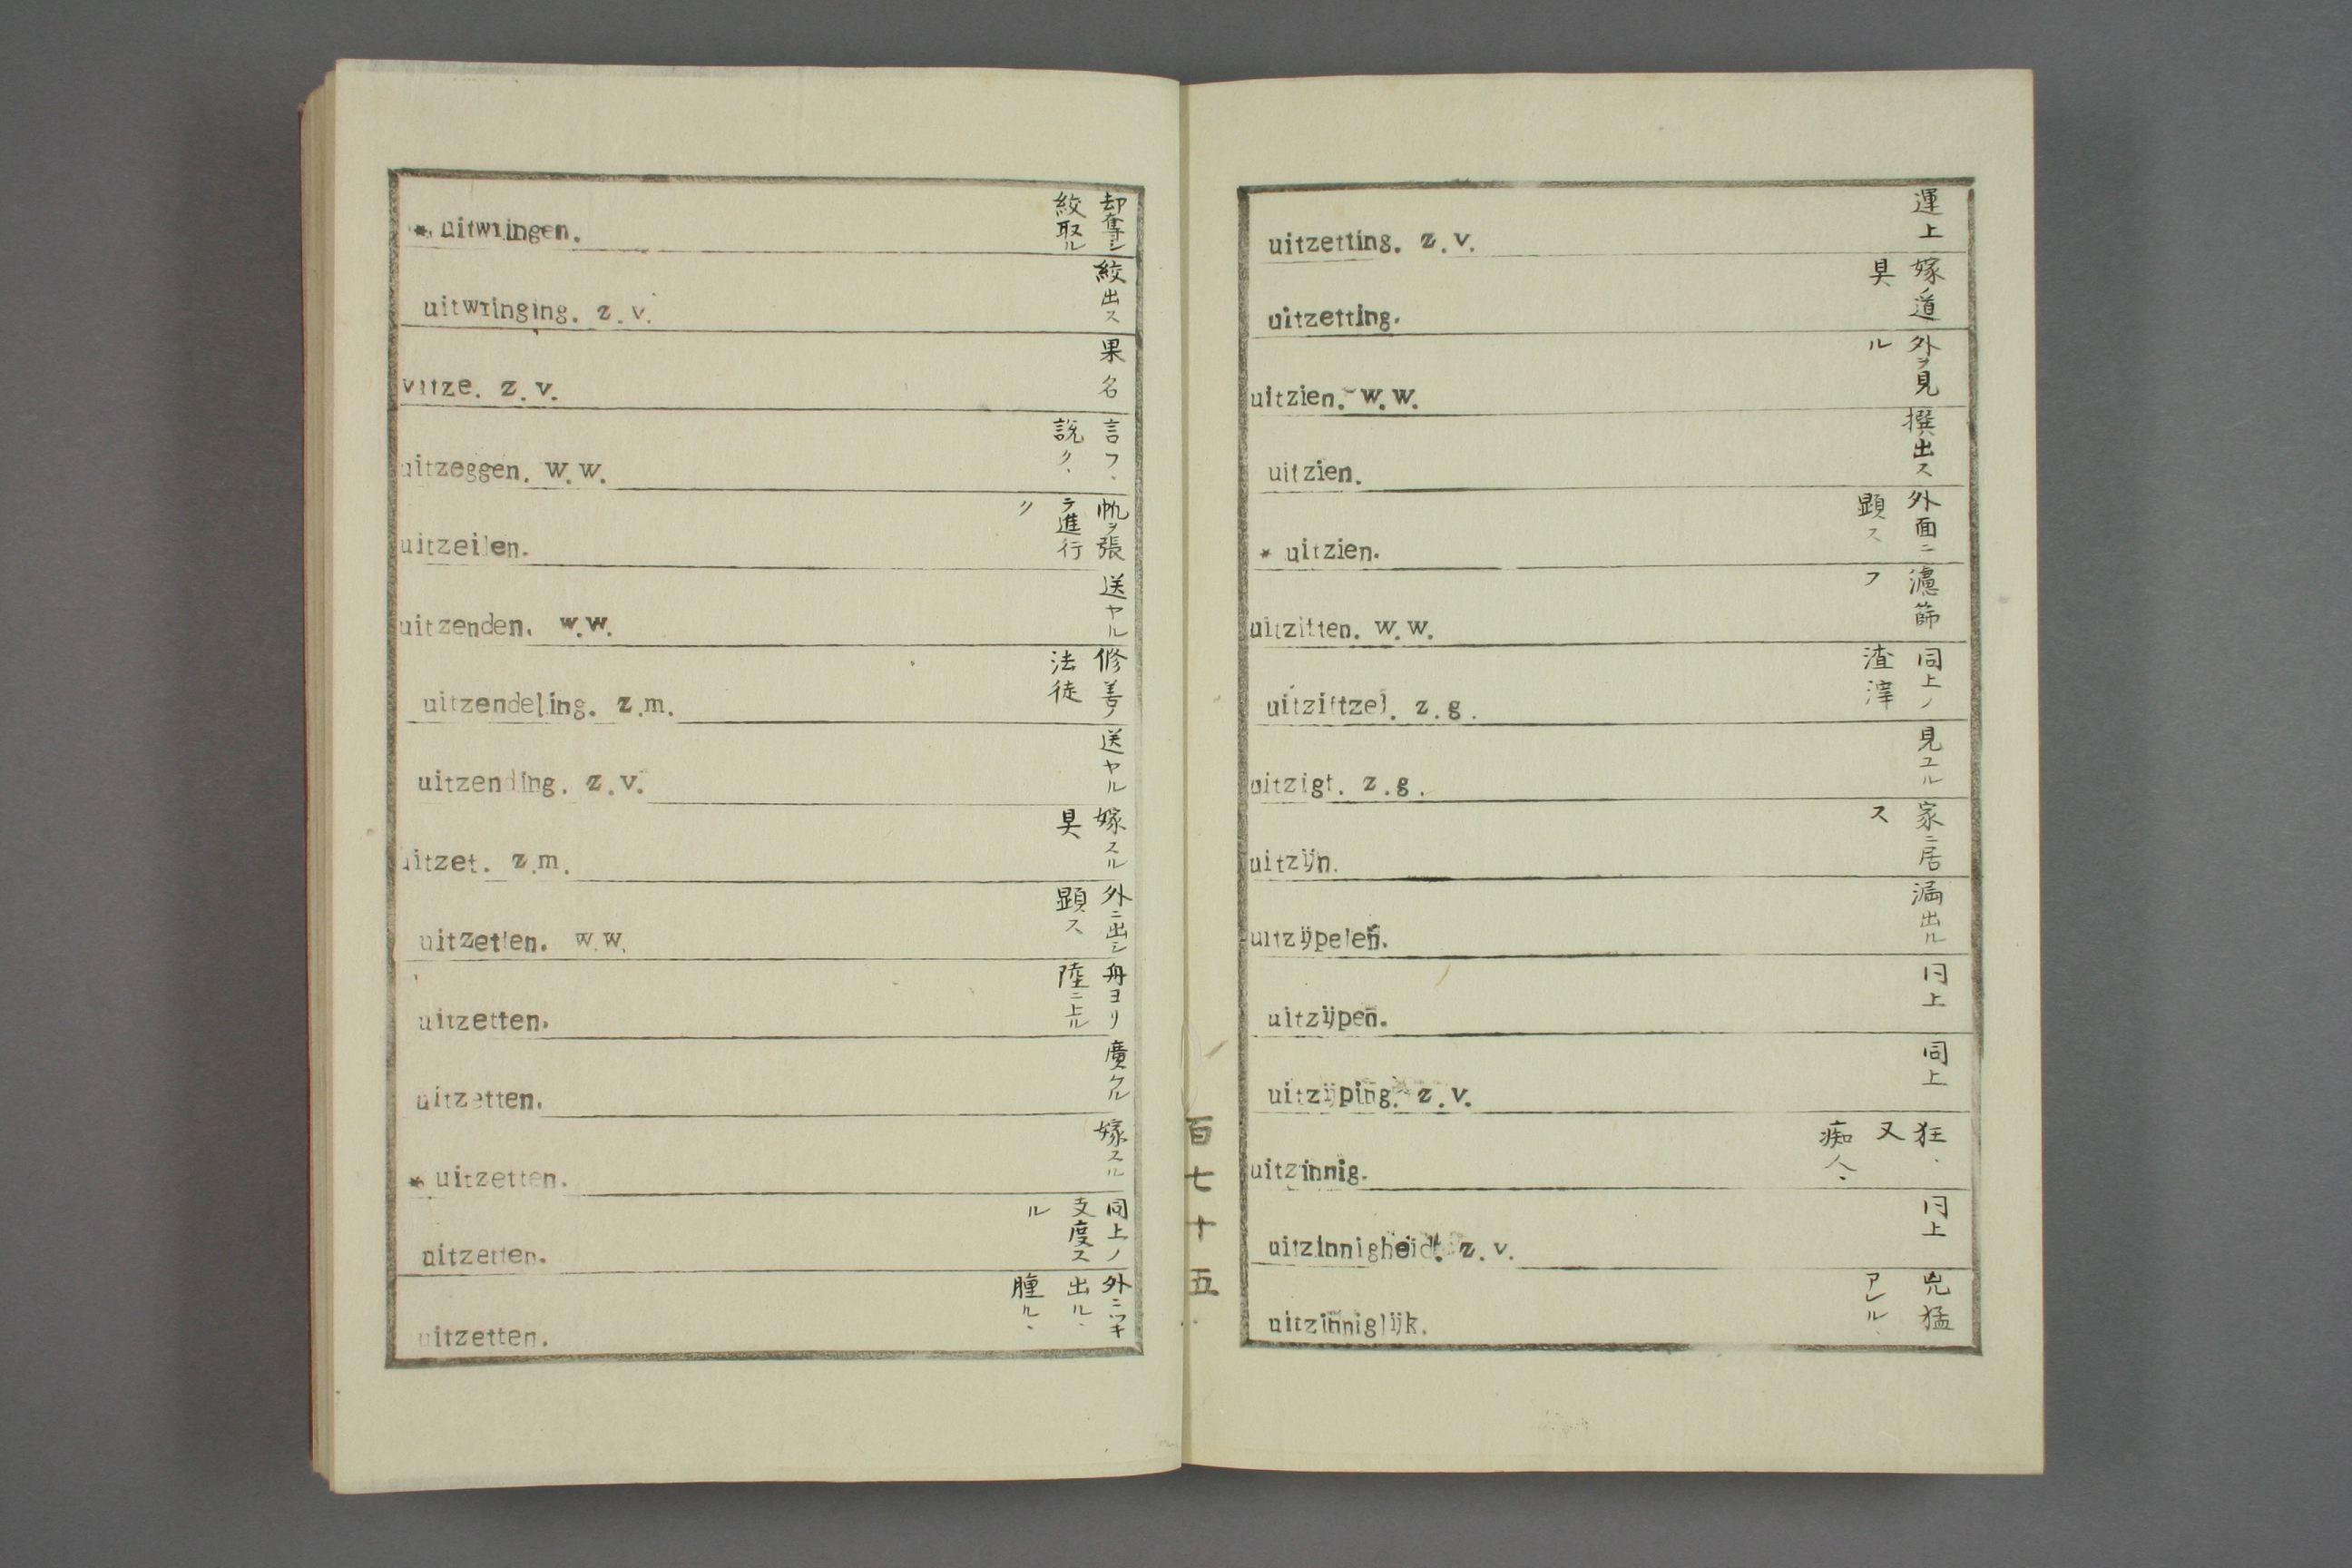 * uitwringen. 却奪シ絞取ル
uitwringing. z.v. 絞出ス
vitze. z.v. 果名
uitzeggen. w.w. 言フ、説ク、
uitzeilen. 帆ヲ張テ進行ク
uitzenden. w.w. 送ヤル
uitzendeling. z.m. 修善ノ法徒
uitzending. z.v. 送ヤル
uitzet. z.m. 嫁スル具
uitzetten. w.w. 外ニ出シ顕ス
uitzetten. 舟ヨリ陸ニ上ル
uitzetten. 廣クル
* uitzetten. 嫁スル
uitzetten. 同上ノ支度スル
uitzetten. 外ニツキ出ル、腫ル、
百七十五
uitzetting. z.v. 運上
uitzetting. 嫁道具
uitzien. w.w. 外ヲ見ル
uitzien. 撰出ス
* uitzien. 外面ニ顕ス
uitzitten. w.w. 濾篩フ
uitziftzel. z.g. 同上ノ渣滓
uitzigt. z.g. 見ユル
uitzijn. 家ニ居ス
uitzijpelen. 漏出ル
uitzijpen. 同上
uitzijping. z.v. 同上
uitzinnig. 狂、又痴人、
uitzinnigheid. z.v. 同上
uitzinniglijk. 兇猛アレル、